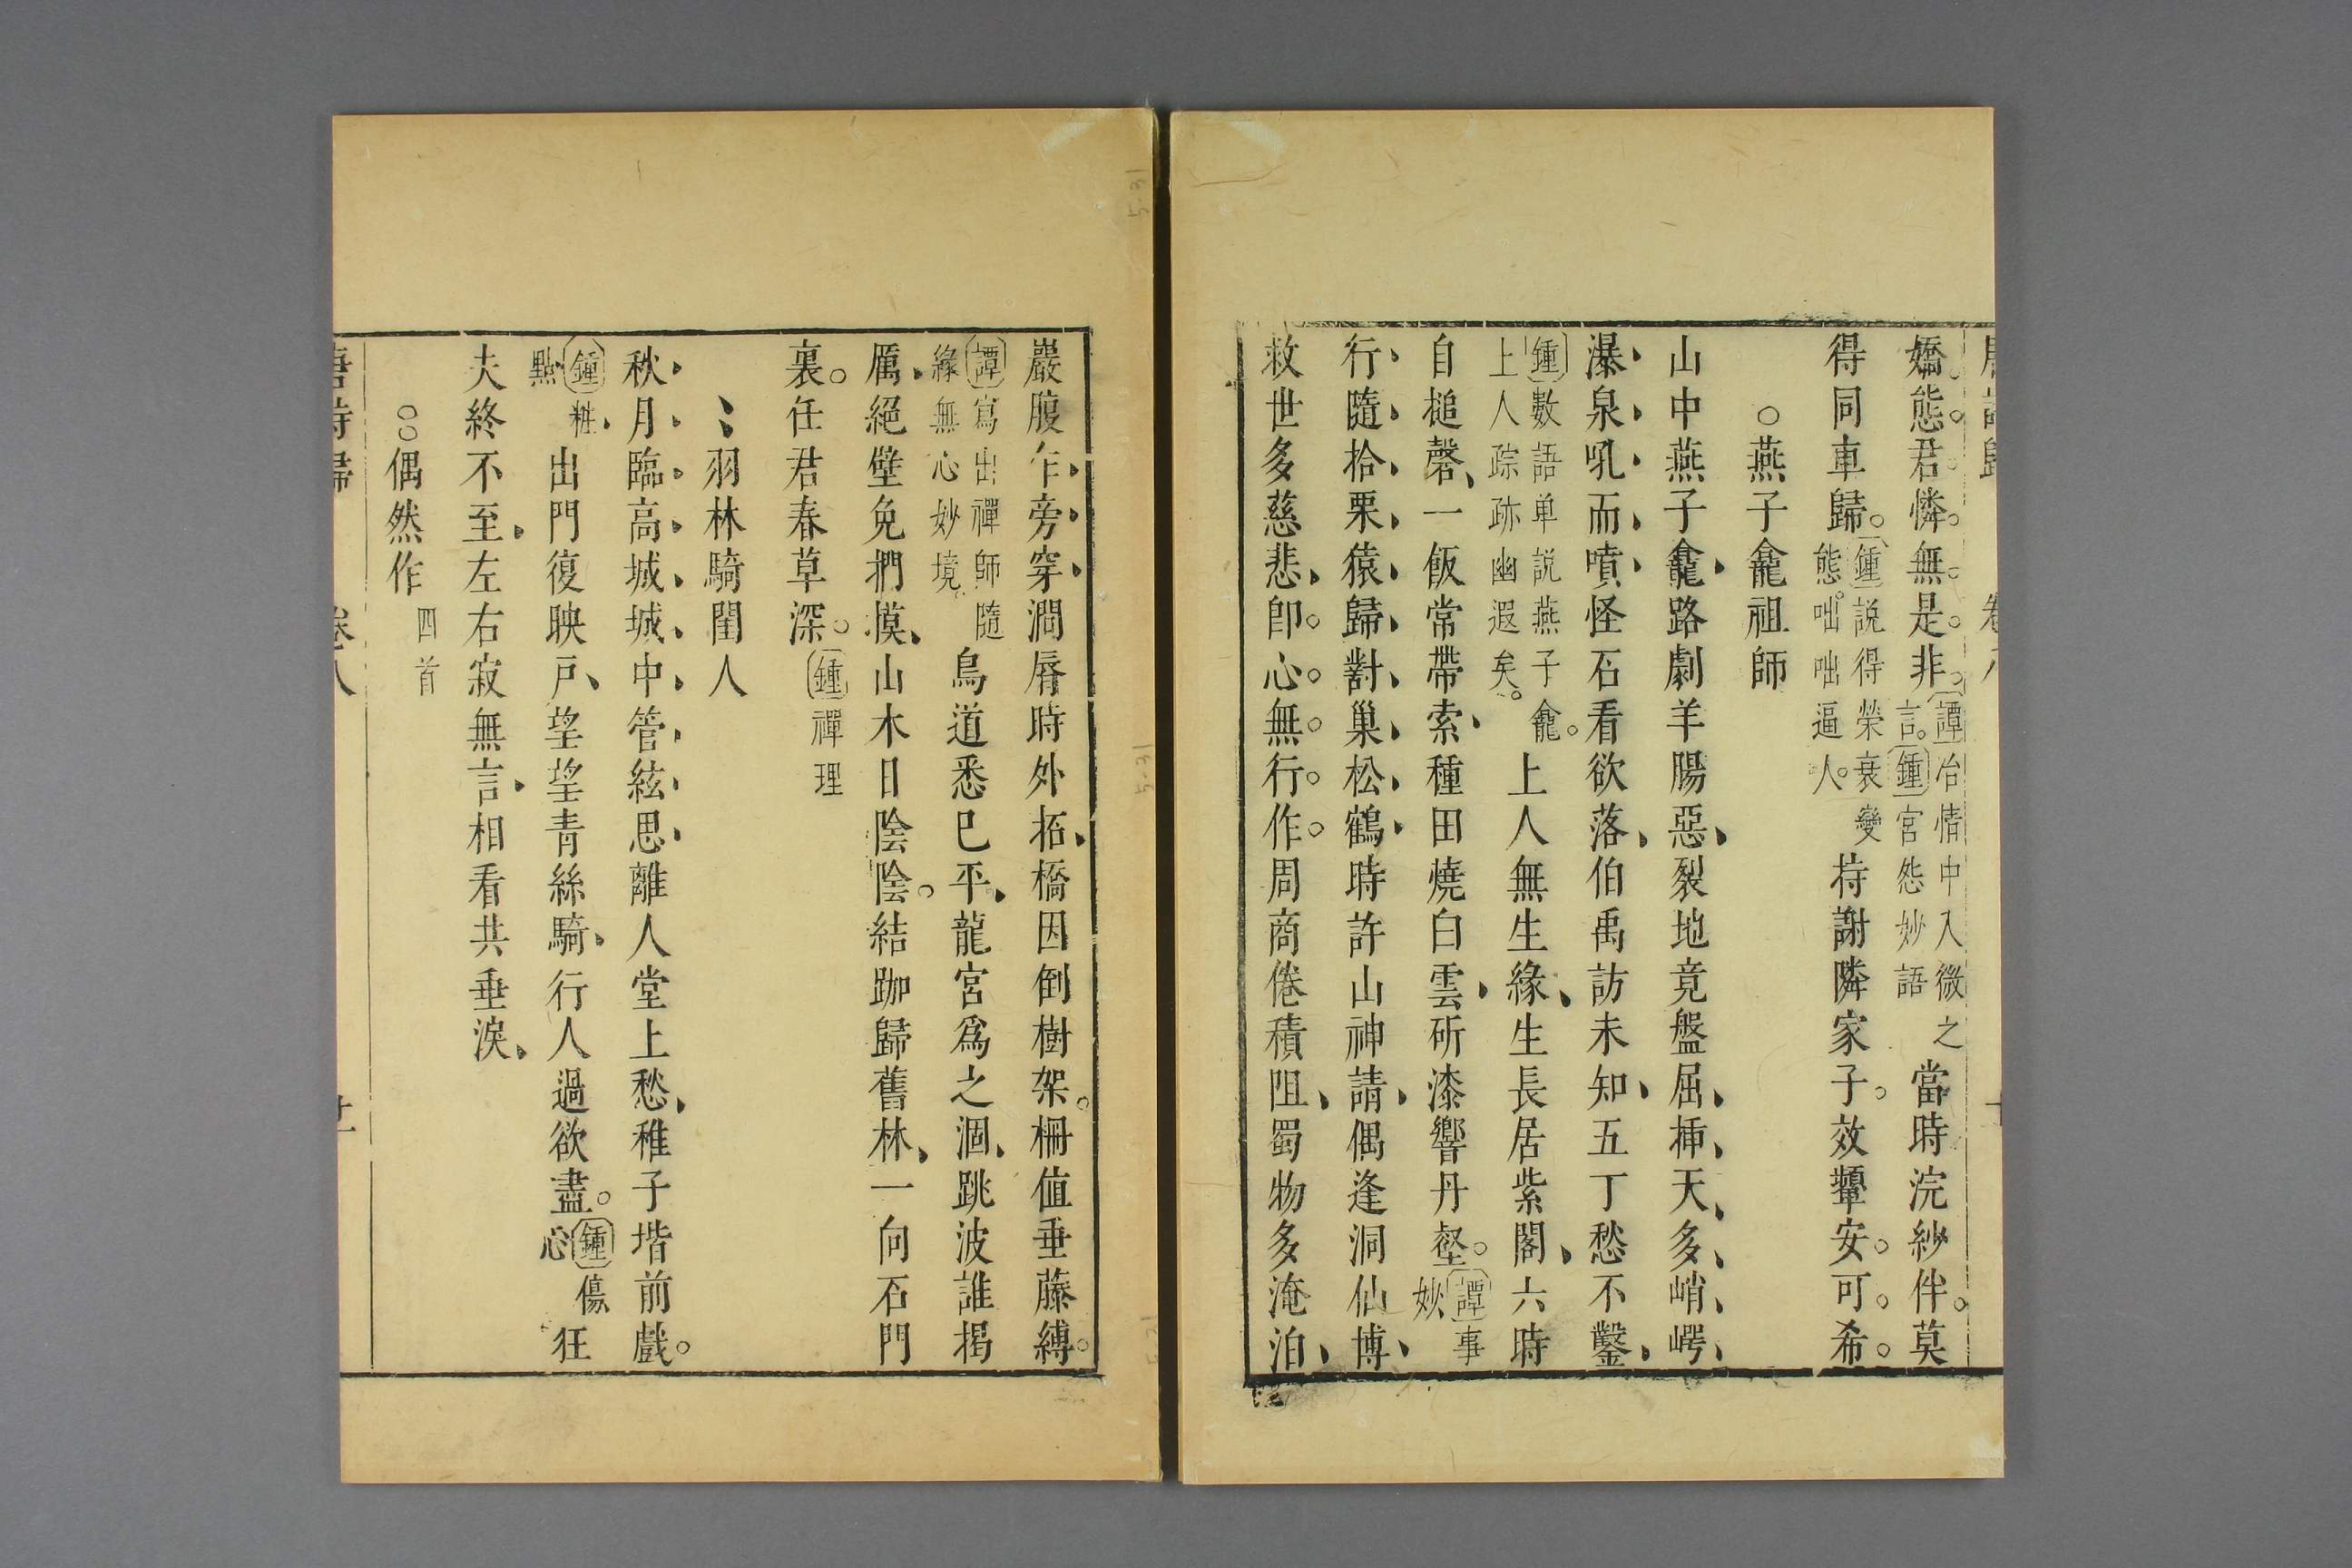 唐詩歸 卷八
嬌態君憐無是非譚冶情中入微之言鍾宮怨妙語當時浣紗伴莫
得同車歸鍾説得榮衰變態咄咄逼人持謝隣家子效顰安可希
○燕子龕祖師
山中燕子龕路劇羊腸惡裂地竟盤屈揷天多峭崿
瀑泉吼而噴怪石看欲落伯禹訪未知五丁愁不鑿
鍾數語单説燕子龕上人踪跡幽遐矣上人無生緣生長居紫閣六時
自槌磬一飯常帶索種田燒白雲斫漆響丹壑譚事妙
行隨拾栗猿歸對巢松鶴時許山神請偶逢洞仙博
救世多慈悲卽心無行作周商倦積阻蜀物多淹泊
巖腹乍旁穿澗脣時外拓橋因倒樹架柵值垂藤縛
譚寫出禪師隨緣無心妙境鳥道悉已平龍宮爲之涸跳波誰揭
厲絕壁免捫摸山木日陰陰結跏歸舊林一向石門
裏任君春草深鍾禪理
羽林騎閨人
秋月臨高城城中管絃思離人堂上愁稚子堦前戲
鍾粧點出門復映戶望望青絲騎行人過欲盡鍾傷心狂
夫終不至左右寂無言相看共垂淚
○○偶然作四首
唐詩歸 卷八 廿